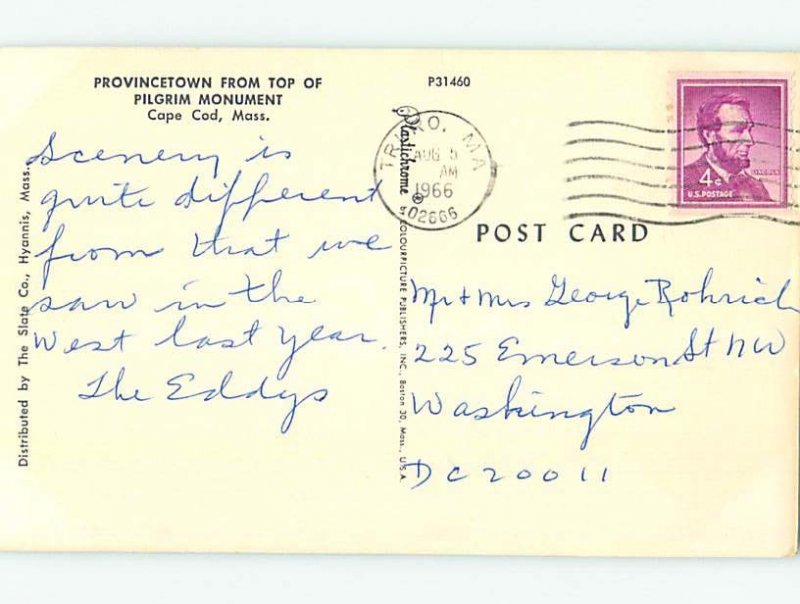 PROVINCETOWN FROM TOP OF
PILGRIM MONUMENT
Cape Cod, Mass.
P31460
Scenery is
quite different
from that we
saw in the
West last year.
The Eddys
Distributed by The Slate Co., Hyannis, Mass.
Plastichrome ® by COLOURPICTURE PUBLISHERS, INC., Boston 30, Mass., U.S.A.
TRURO, MA
AUG 5
AM
1966
02666
LINCOLN
4¢
U.S. POSTAGE
POST CARD
Mr + Mrs George Rohrich
225 Emerson St NW
Washington
DC 20011